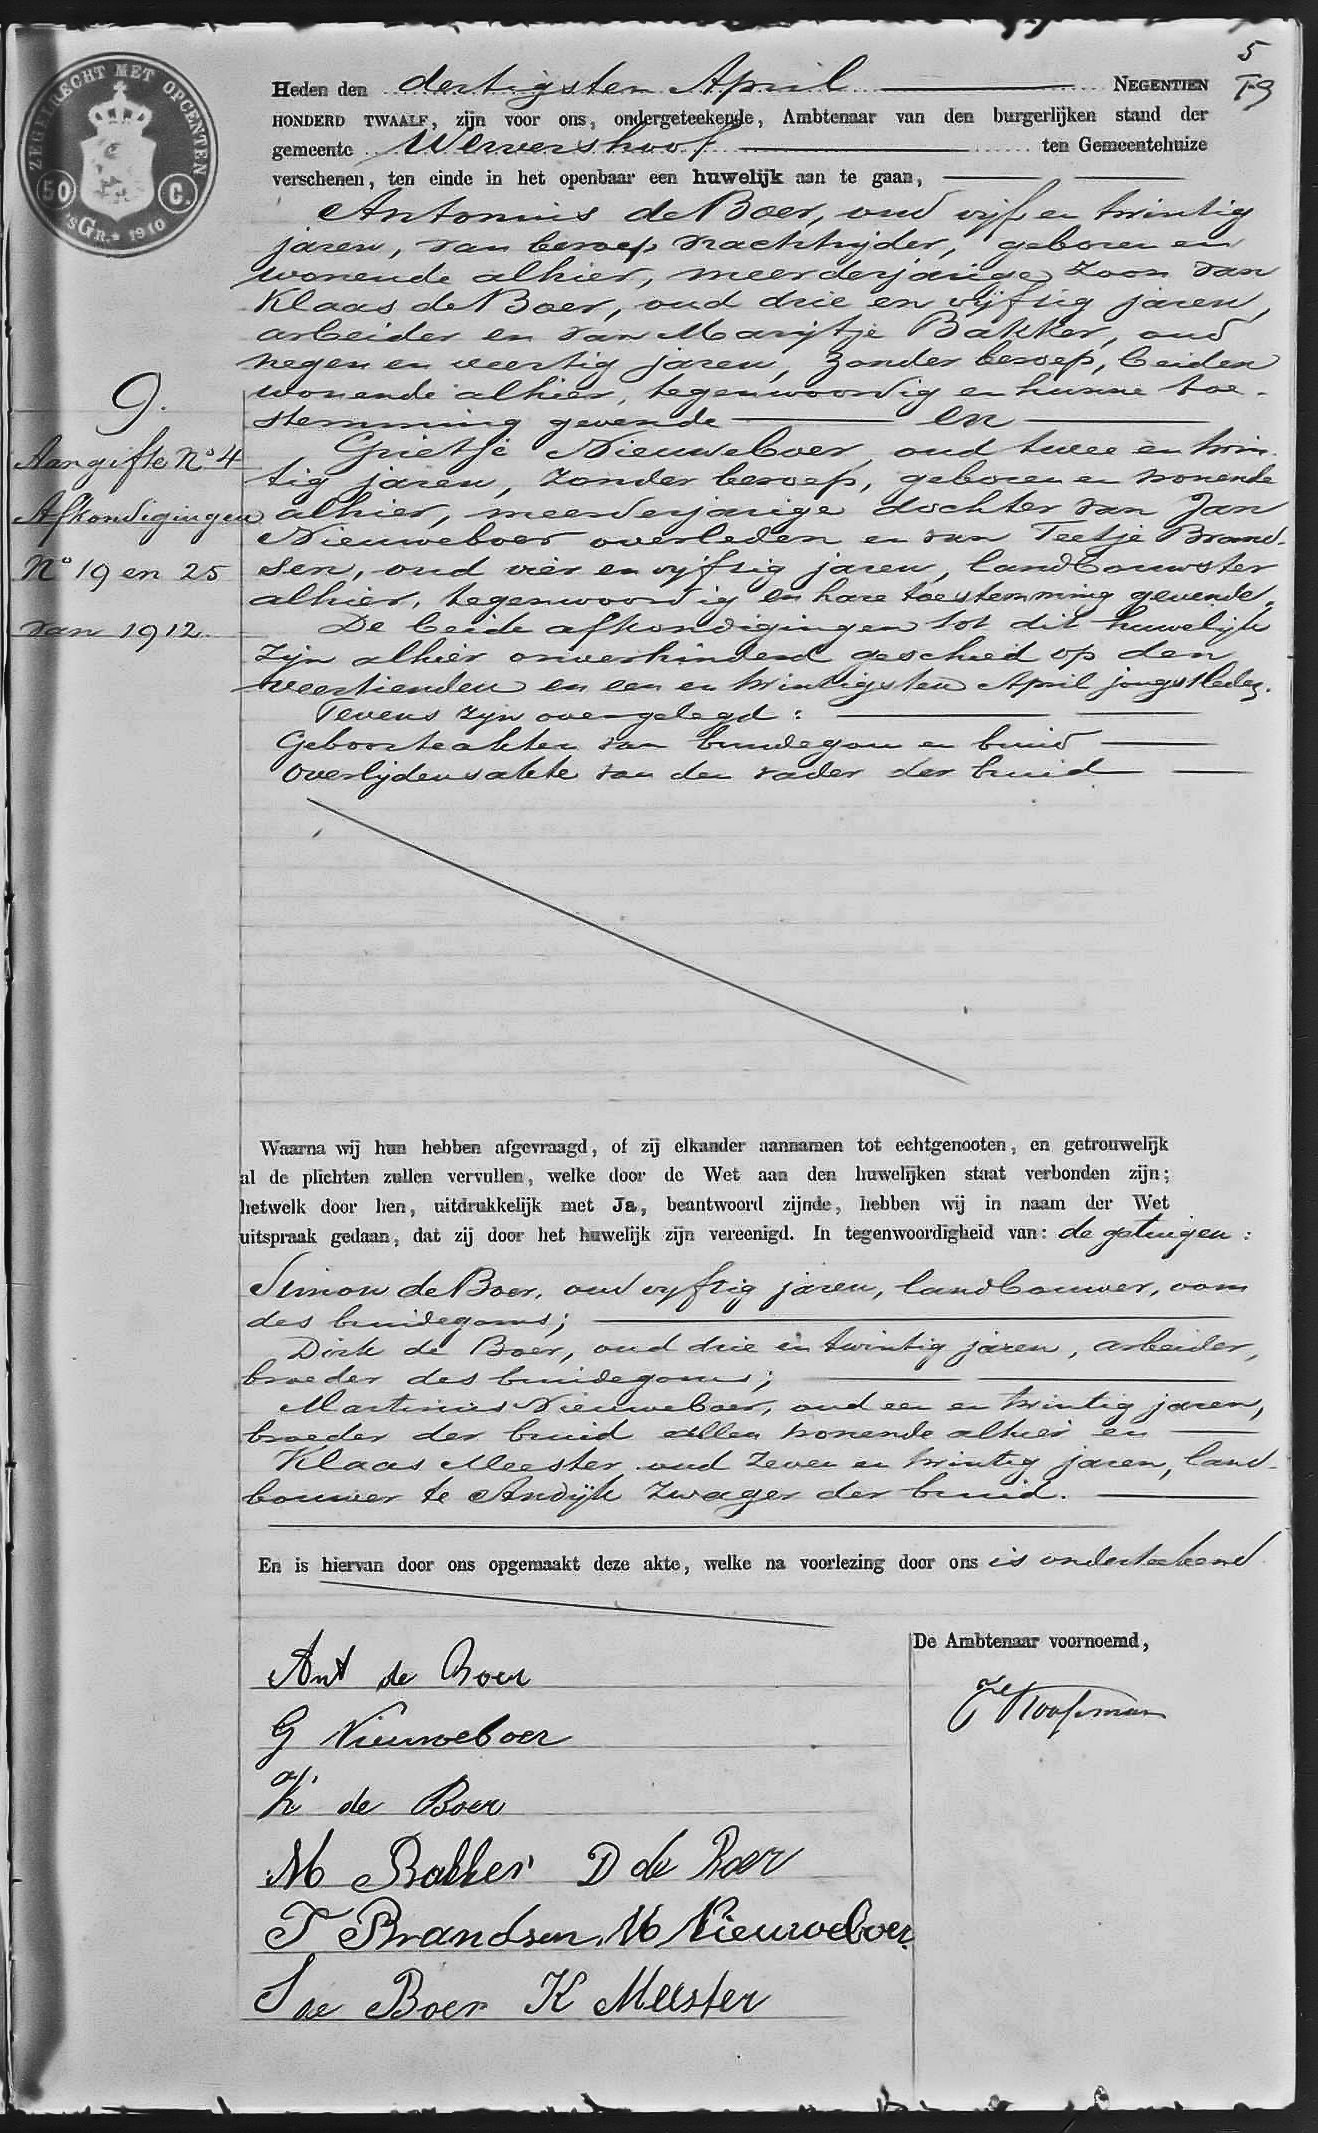 5
ZEGELRECHT MET OPCENTEN
50 C.
'sGR. 1910
Heden den dertigsten April NEGENTIEN
HONDERD TWAALF, zijn voor ons, ondergeteekende, Ambtenaar van den burgerlijken stand der
gemeente Wervershoof ten Gemeentehuize
verschenen, ten einde in het openbaar een huwelijk aan te gaan,
Antonius de Boer, oud vijf en twintig
jaren, van beroep vrachtrijder, geboren en
wonende alhier, meerderjarige zoon van
Klaas de Boer, oud drie en vijftig jaren,
arbeider en van Marijtje Bakker, oud
negen en veertig jaren, zonder beroep, beiden
wonende alhier, tegenwoordig en hunne toe-
stemming gevende en
Grietje Nieuweboer, oud twee en twin-
tig jaren, zonder beroep, geboren en wonende
alhier, meerderjarige dochter van Jan
Nieuweboer overleden en van Teetje Brand-
sen, oud vier en vijftig jaren, landbouwster
alhier, tegenwoordig en hare toestemming gevende.
De beide afkondigingen tot dit huwelijk
zijn alhier onverhinderd geschied op den
veertienden en een en twintigsten April jongstleden.
Tevens zijn overgelegd:
Geboorteakten van bruidegom en bruid
Overlijdensakte van den vader der bruid
9.
Aangifte No 4
Afkondigingen
No 19 en 25
van 1912.
Waarna wij hun hebben afgevraagd, of zij elkander aannamen tot echtgenooten, en getrouwelijk
al de plichten zullen vervullen, welke door de Wet aan den huwelijken staat verbonden zijn;
hetwelk door hen, uitdrukkelijk met Ja, beantwoord zijnde, hebben wij in naam der Wet
uitspraak gedaan, dat zij door het huwelijk zijn vereenigd. In tegenwoordigheid van: de getuigen:
Simon de Boer, oud vyftig jaren, landbouwer, oom
des bruidegoms;
Dirk de Boer, oud drie en twintig jaren, arbeider,
broeder des bruidegoms;
Martinus Nieuweboer, oud een en twintig jaren,
broeder der bruid allen wonende alhier en
Klaas Meester, oud zeven en twintig jaren, land-
bouwer te Andijk zwager der bruid.
En is hiervan door ons opgemaakt deze akte, welke na voorlezing door ons is onderteekend
De Ambtenaar voornoemd,
Koopman
Ant de Boer
G Nieuweboer
K de Boer
M Bakker D de Boer
T Brandsen M Nieuweboer
S de Boer K Meester